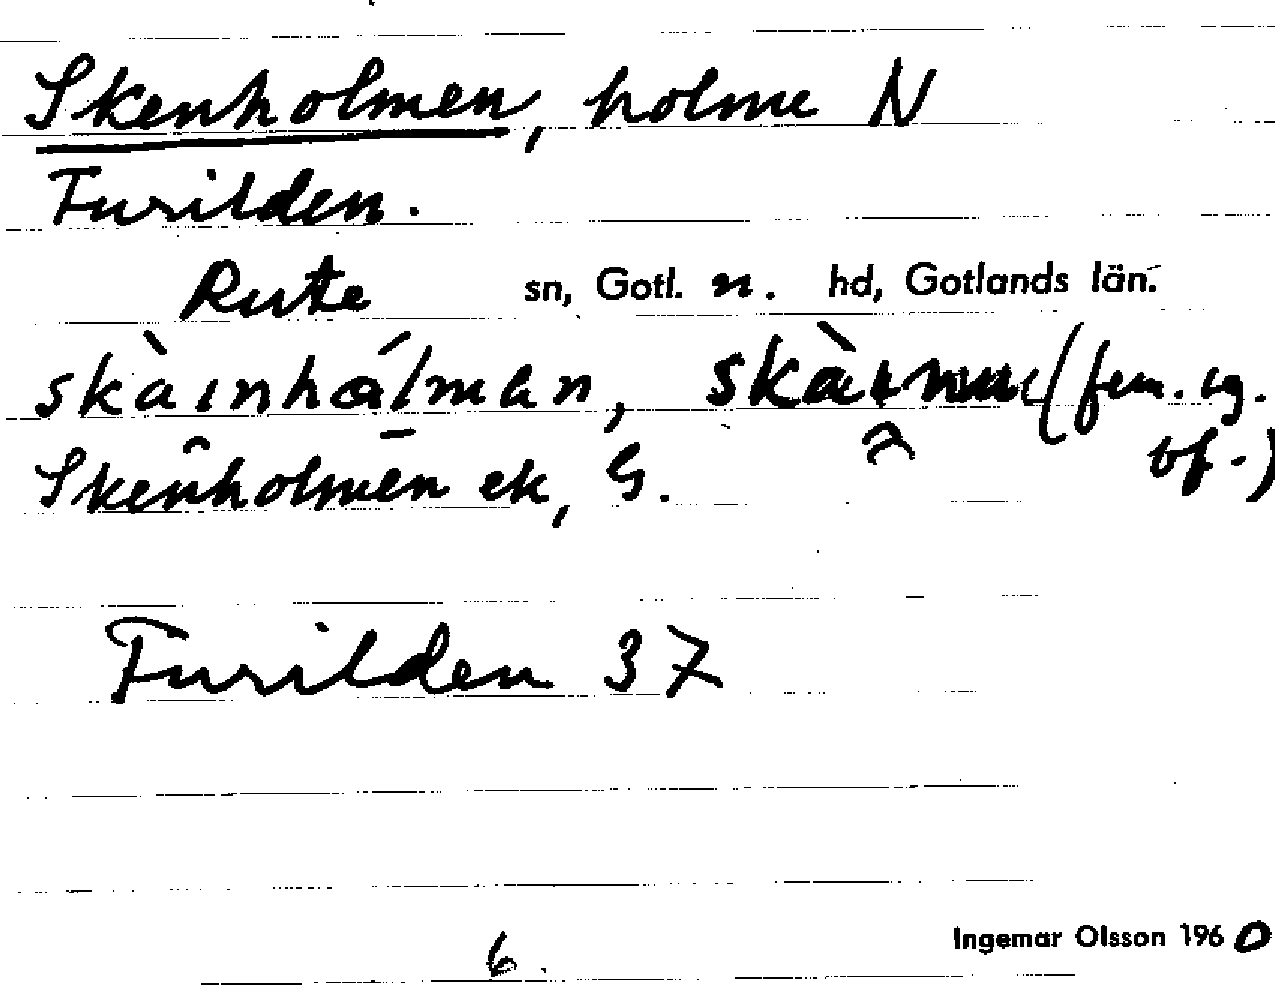 Skenholmen, holme N
Furilden.
Rute sn, Gotl. n. hd, Gotlands län.
skàınhálmen, (fem. sg.
bf.)
Skenholmen ek, G.
Furilden 37
6
Ingemar Olsson 1960